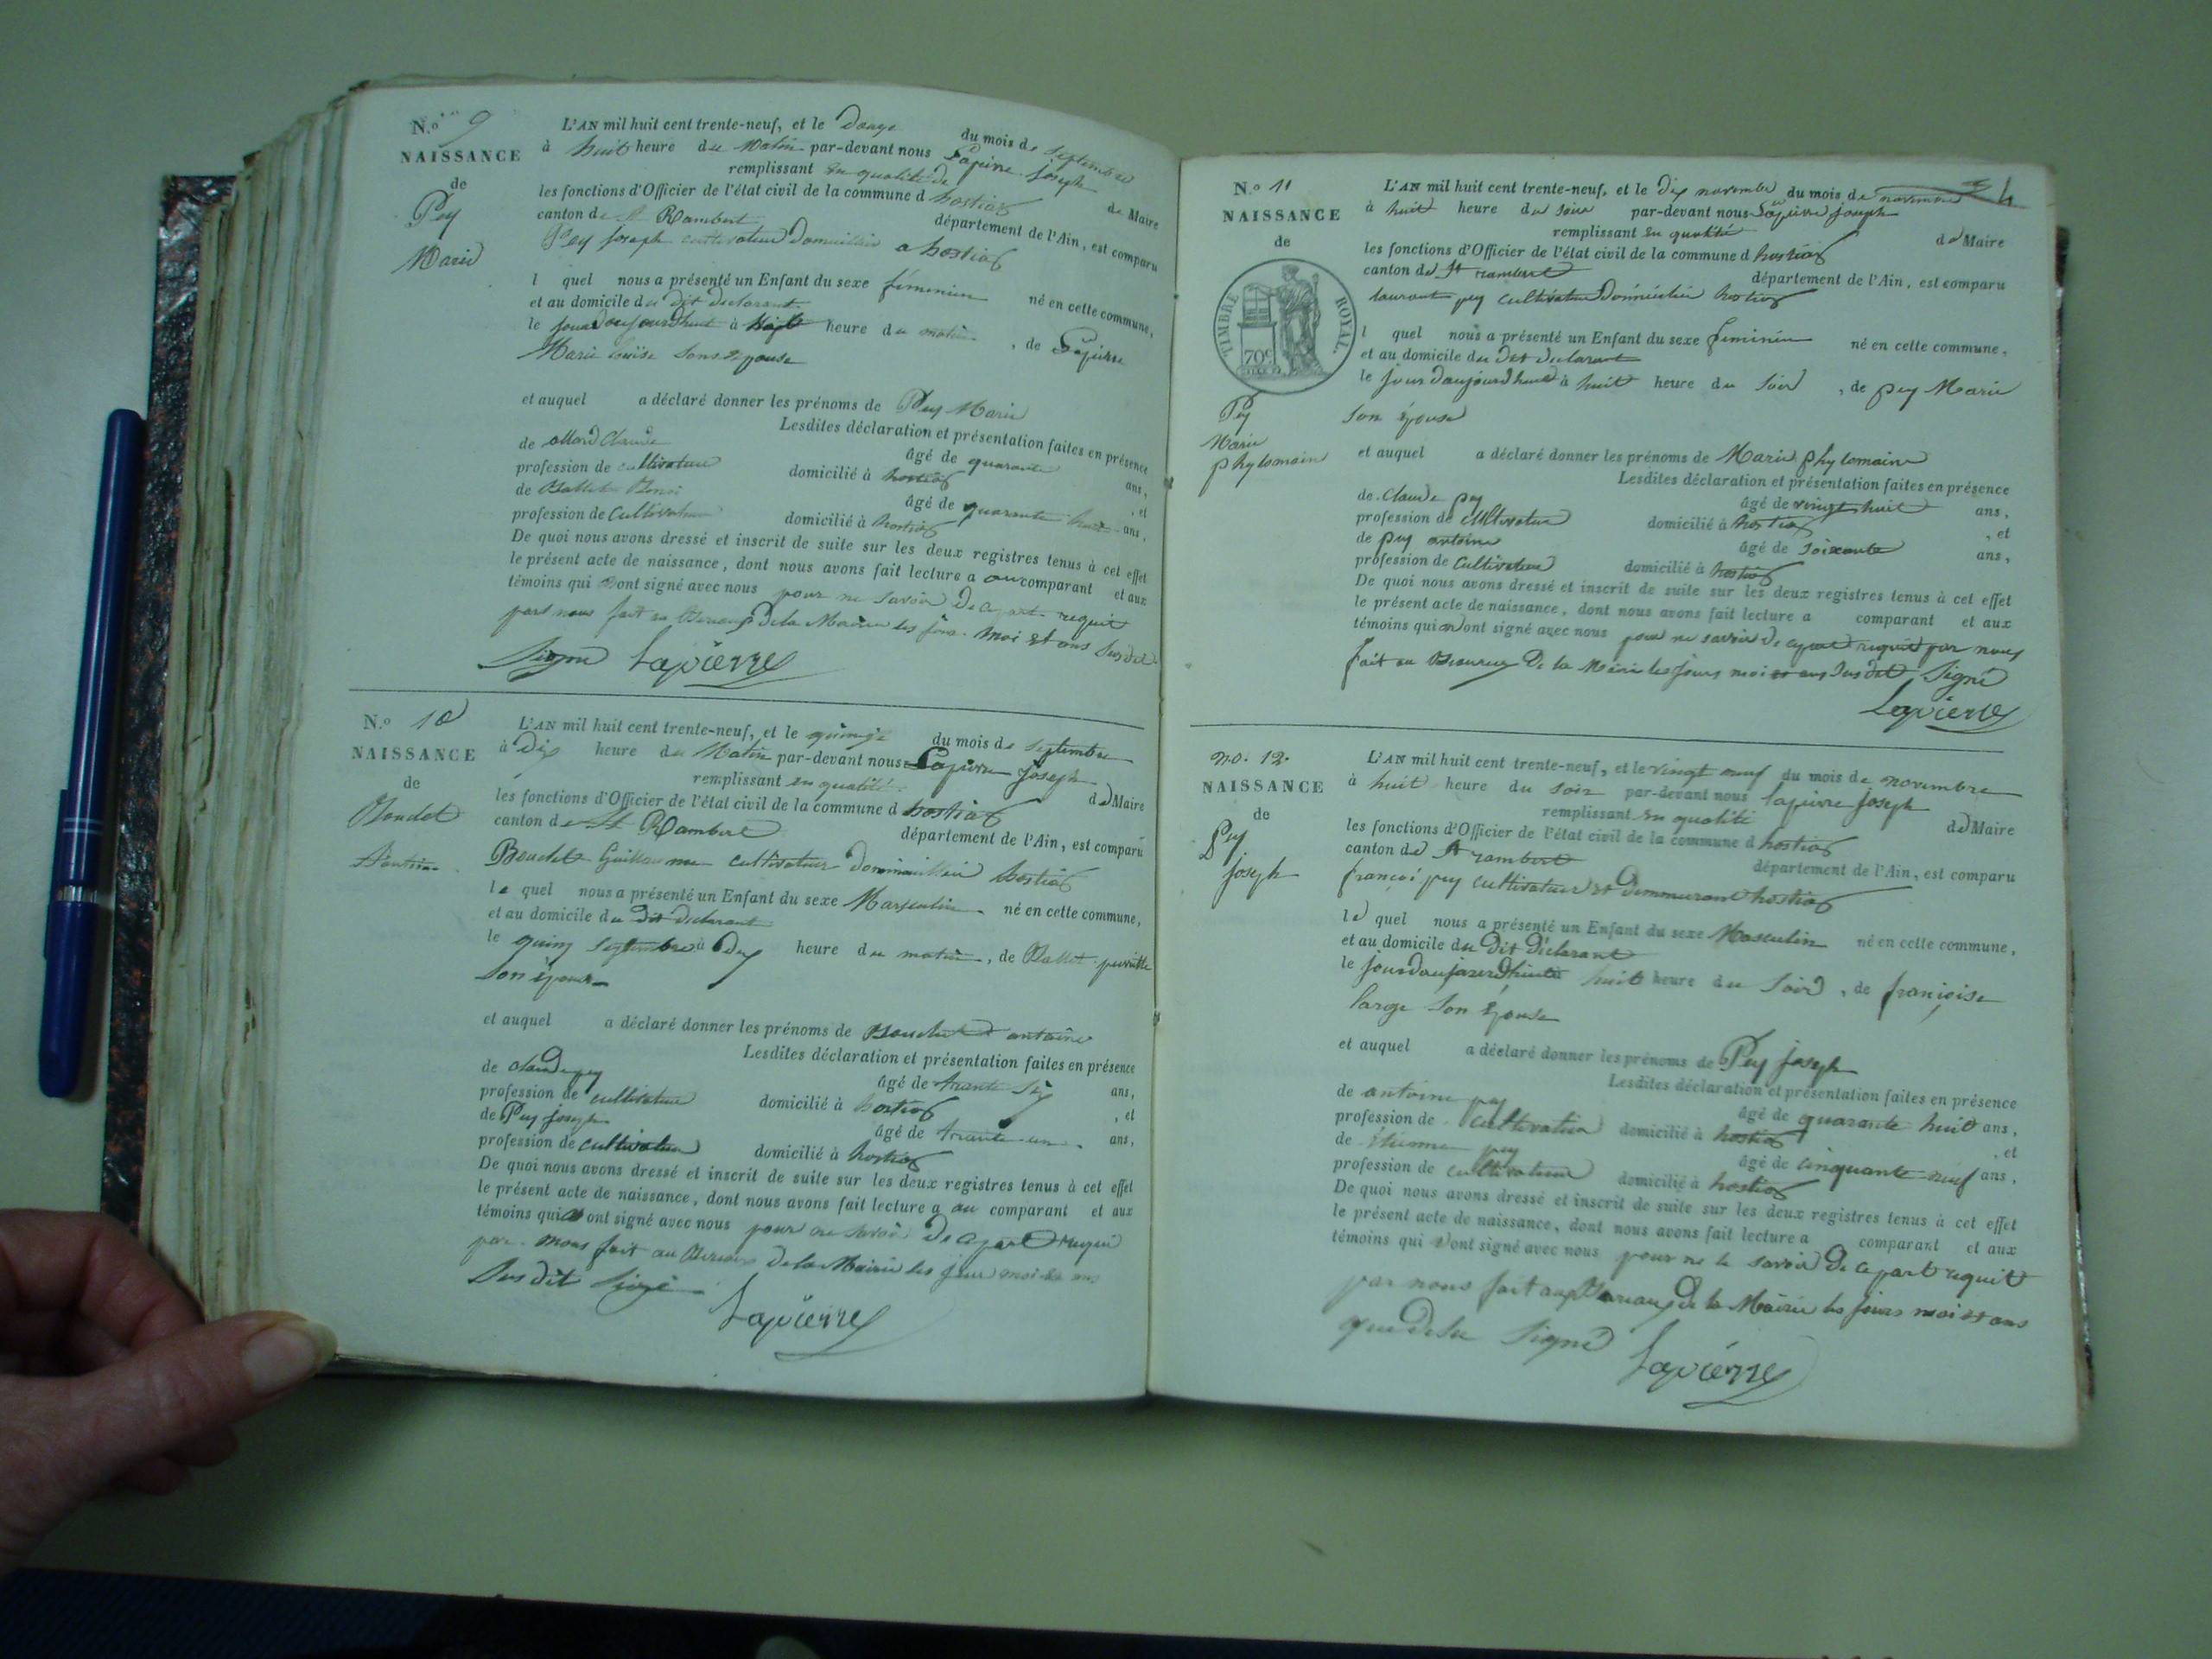 N.o 9
NAISSANCE
de
Pey
Marie
L'AN mil huit cent trente-neuf, et le douze du mois de septembre
à huit heure du Matin par-devant nous Lapierre joseph
remplissant en qualité de de Maire
les fonctions d'Officier de l'état civil de la commune d hostiaz
canton de St Rambert département de l'Ain, est comparu
Pey joseph cultivateur domicilié a hostiaz
l quel nous a présenté un Enfant du sexe féminin né en cette commune,
et au domicile du dit declarant
le jour d'aujourdhuit à heure du matin, de Lapierre
Marie louise Son Epouse
et auquel a déclaré donner les prénoms de Pey Marie
Lesdites déclaration et présentation faites en présence
de Claude âgé de quarante ans,
profession de cultivateur domicilié à hostiaz, et
de âgé de quarante huit ans,
profession de Cultivateur domicilié à hostiaz
De quoi nous avons dressé et inscrit de suite sur les deux registres tenus à cet effet
le présent acte de naissance, dont nous avons fait lecture a au comparant et aux
témoins qui ont signé avec nous pour ne savoir de a part requit
part nous fait au Bureaux de la Mairie les jour moi et ans Sus dit
Signé Lapierre
N.o 10
NAISSANCE
de
Boudet
L'AN mil huit cent trente-neuf, et le quinze du mois de septembre
à Dix heure du Matin par-devant nous Lapierre joseph
remplissant en qualité de Maire
les fonctions d'Officier de l'état civil de la commune d hostiaz
canton de St Rambert département de l'Ain, est comparu
Boudet Guillaume cultivateur hostiaz
le quel nous a présenté un Enfant du sexe Masculin né en cette commune,
et au domicile du dit declarant
le quinz septembre à Dix heure du matin, de Ballet
Son épouse
et auquel a déclaré donner les prénoms de Boudet antoine
Lesdites déclaration et présentation faites en présence
de claude pey âgé de trante Six ans,
profession de cultivateur domicilié à hostiaz, et
de Pey joseph âgé de trante un ans,
profession de cultivateur domicilié à hostiaz
De quoi nous avons dressé et inscrit de suite sur les deux registres tenus à cet effet
le présent acte de naissance, dont nous avons fait lecture a au comparant et aux
témoins qui ont signé avec nous pour ne savoir de a part requit
par nous fait au Bureaux de la Mairie les jour moi et ans
Sus dit Signé
Lapierre
4
N.o 11
NAISSANCE
de
TIMBRE ROYAL.
70c
Pey
Marie
phylomain
L'AN mil huit cent trente-neuf, et le Dix novembre du mois de novembre
à huit heure du soir par-devant nous Lapierre joseph
remplissant en qualité de Maire
les fonctions d'Officier de l'état civil de la commune d hostiaz
canton de St rambert département de l'Ain, est comparu
laurant pey cultivateur hostiaz
l quel nous a présenté un Enfant du sexe feminin né en cette commune,
et au domicile du dit declarant
le jour daujourdhuit à huit heure du Soir, de pey Marie
Son épouse
et auquel a déclaré donner les prénoms de Marie phylomaine
Lesdites déclaration et présentation faites en présence
de Claude pey âgé de vingt huit ans,
profession de cultivateur domicilié à hostiaz, et
de pey antoine âgé de soixante ans,
profession de Cultivateur domicilié à hostiaz
De quoi nous avons dressé et inscrit de suite sur les deux registres tenus à cet effet
le présent acte de naissance, dont nous avons fait lecture a comparant et aux
témoins qui ont signé avec nous pour ne savoir de a part requit par nous
fait au Bureaux De la Mairie les jours moi et ans Sus dit Signé
Lapierre
no. 12.
NAISSANCE
de
Pey
joseph
L'AN mil huit cent trente-neuf, et le vingt neuf du mois de novembre
à huit heure du soir par-devant nous lapierre joseph
remplissant en qualité de Maire
les fonctions d'Officier de l'état civil de la commune d hostiaz
canton de St rambert département de l'Ain, est comparu
françoi pey cultivateur et Demmurant hostiaz
le quel nous a présenté un Enfant du sexe Masculin né en cette commune,
et au domicile du Dit Déclarant
le jour daujourdhuit à huit heure du Soir, de françoise
large Son épouse
et auquel a déclaré donner les prénoms de Pey joseph
Lesdites déclaration et présentation faites en présence
de antoine pey âgé de quarante huit ans,
profession de cultivateur domicilié à hostiaz, et
de Etienne pey âgé de cinquante neuf ans,
profession de cultivateur domicilié à hostiaz
De quoi nous avons dressé et inscrit de suite sur les deux registres tenus à cet effet
le présent acte de naissance, dont nous avons fait lecture a comparant et aux
témoins qui ont signé avec nous pour ne le savoir De a part requit
par nous fait aux Bureaux de la Mairie les jours moi et ans
que desu Signé Lapierre